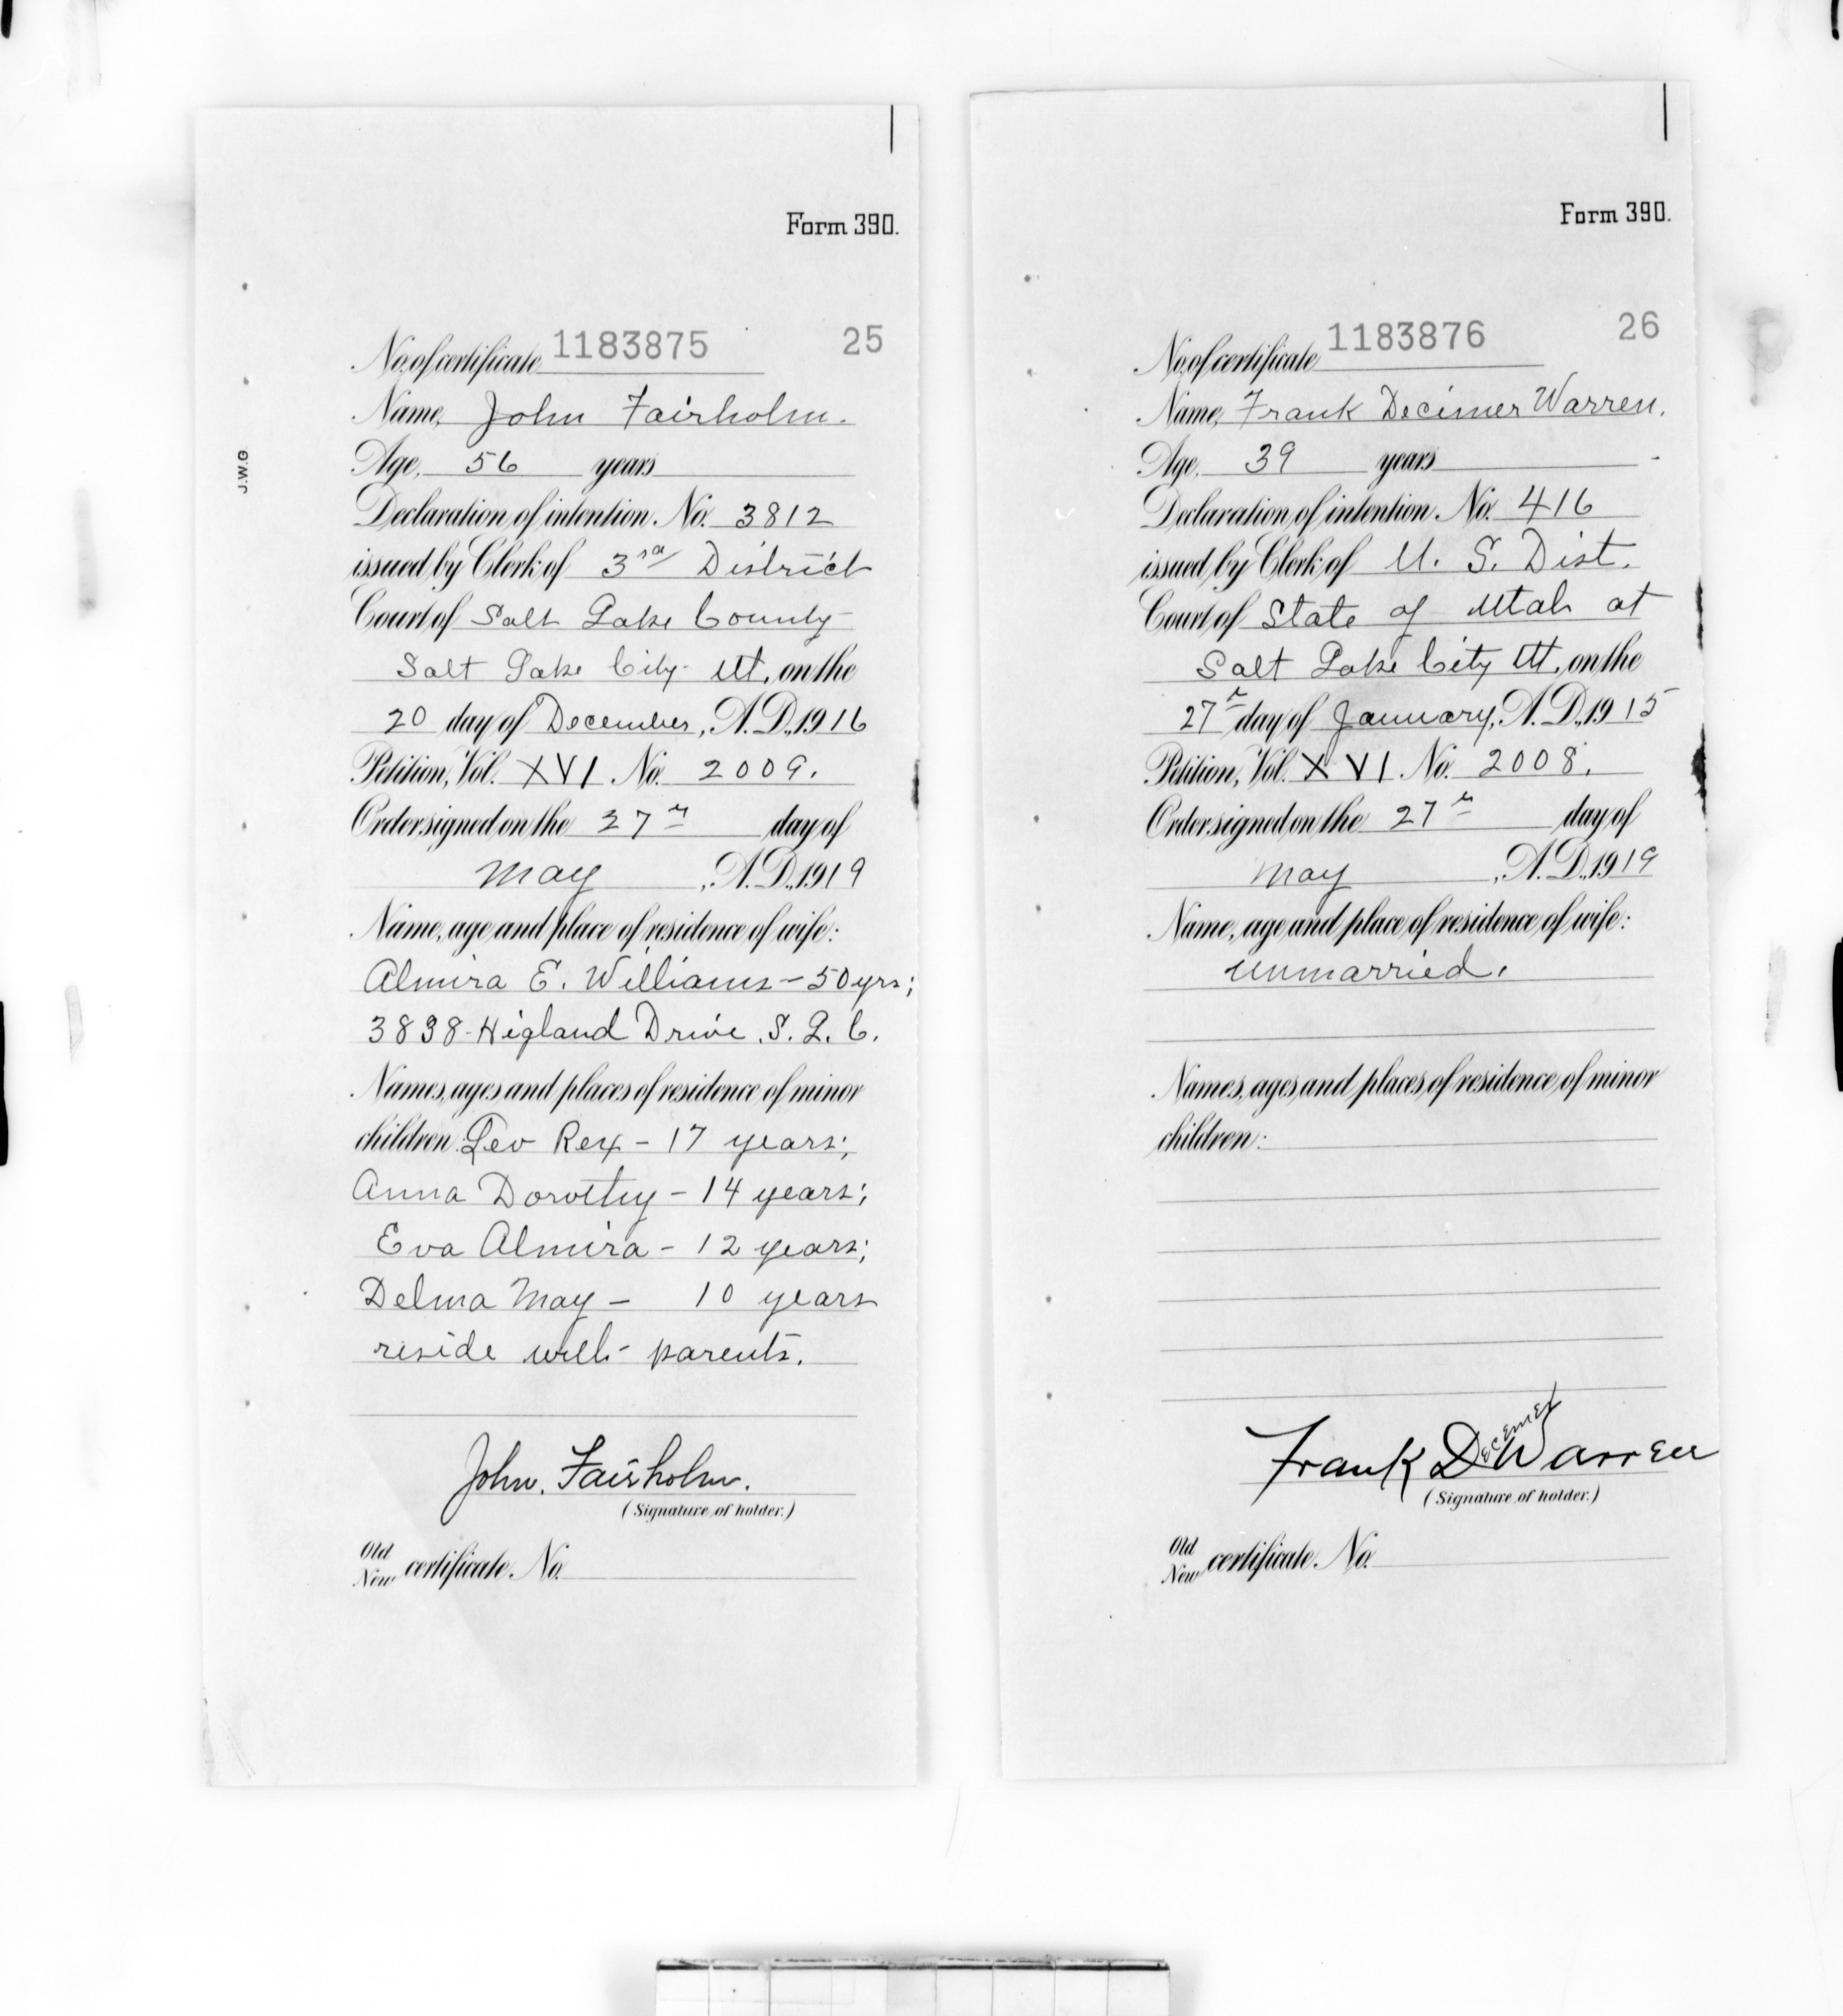 Form 390.
No. of certificate 1183875 25
Name, John Fairholm.
Age, 56 years
Declaration of intention. No. 3812
issued by Clerk of 3rd District
Court of Salt Lake County
Salt Lake City Ut, on the
20 day of December, A.D., 1916
Petition, Vol. XVI No. 2009.
Order signed on the 27th day of
May, A.D., 1919
Name, age and place of residence of wife:
Almira E. Williams - 50 yrs;
3838 - Higland Drive. S. L. C.
Names, ages and places of residence of minor
children: Leo Rex - 17 years;
Anna Dorothy - 14 years;
Eva Almira - 12 years;
Delma May - 10 years
reside with parents.
John. Fairholm.
(Signature of holder.)
Old
New certificate. No.
J.W.G
Form 390.
No. of certificate 1183876 26
Name, Frank Decimer Warren.
Age, 39 years
Declaration of intention. No. 416
issued by Clerk of U. S. Dist.
Court of State of Utah at
Salt Lake City Ut, on the
27th day of January, A.D., 1915
Petition, Vol. XVI No. 2008.
Order signed on the 27th day of
May, A.D., 1919
Name, age and place of residence of wife:
Unmarried.
Names, ages and places of residence of minor
children:
Frank Decemer Warren
(Signature of holder.)
Old
New certificate. No.